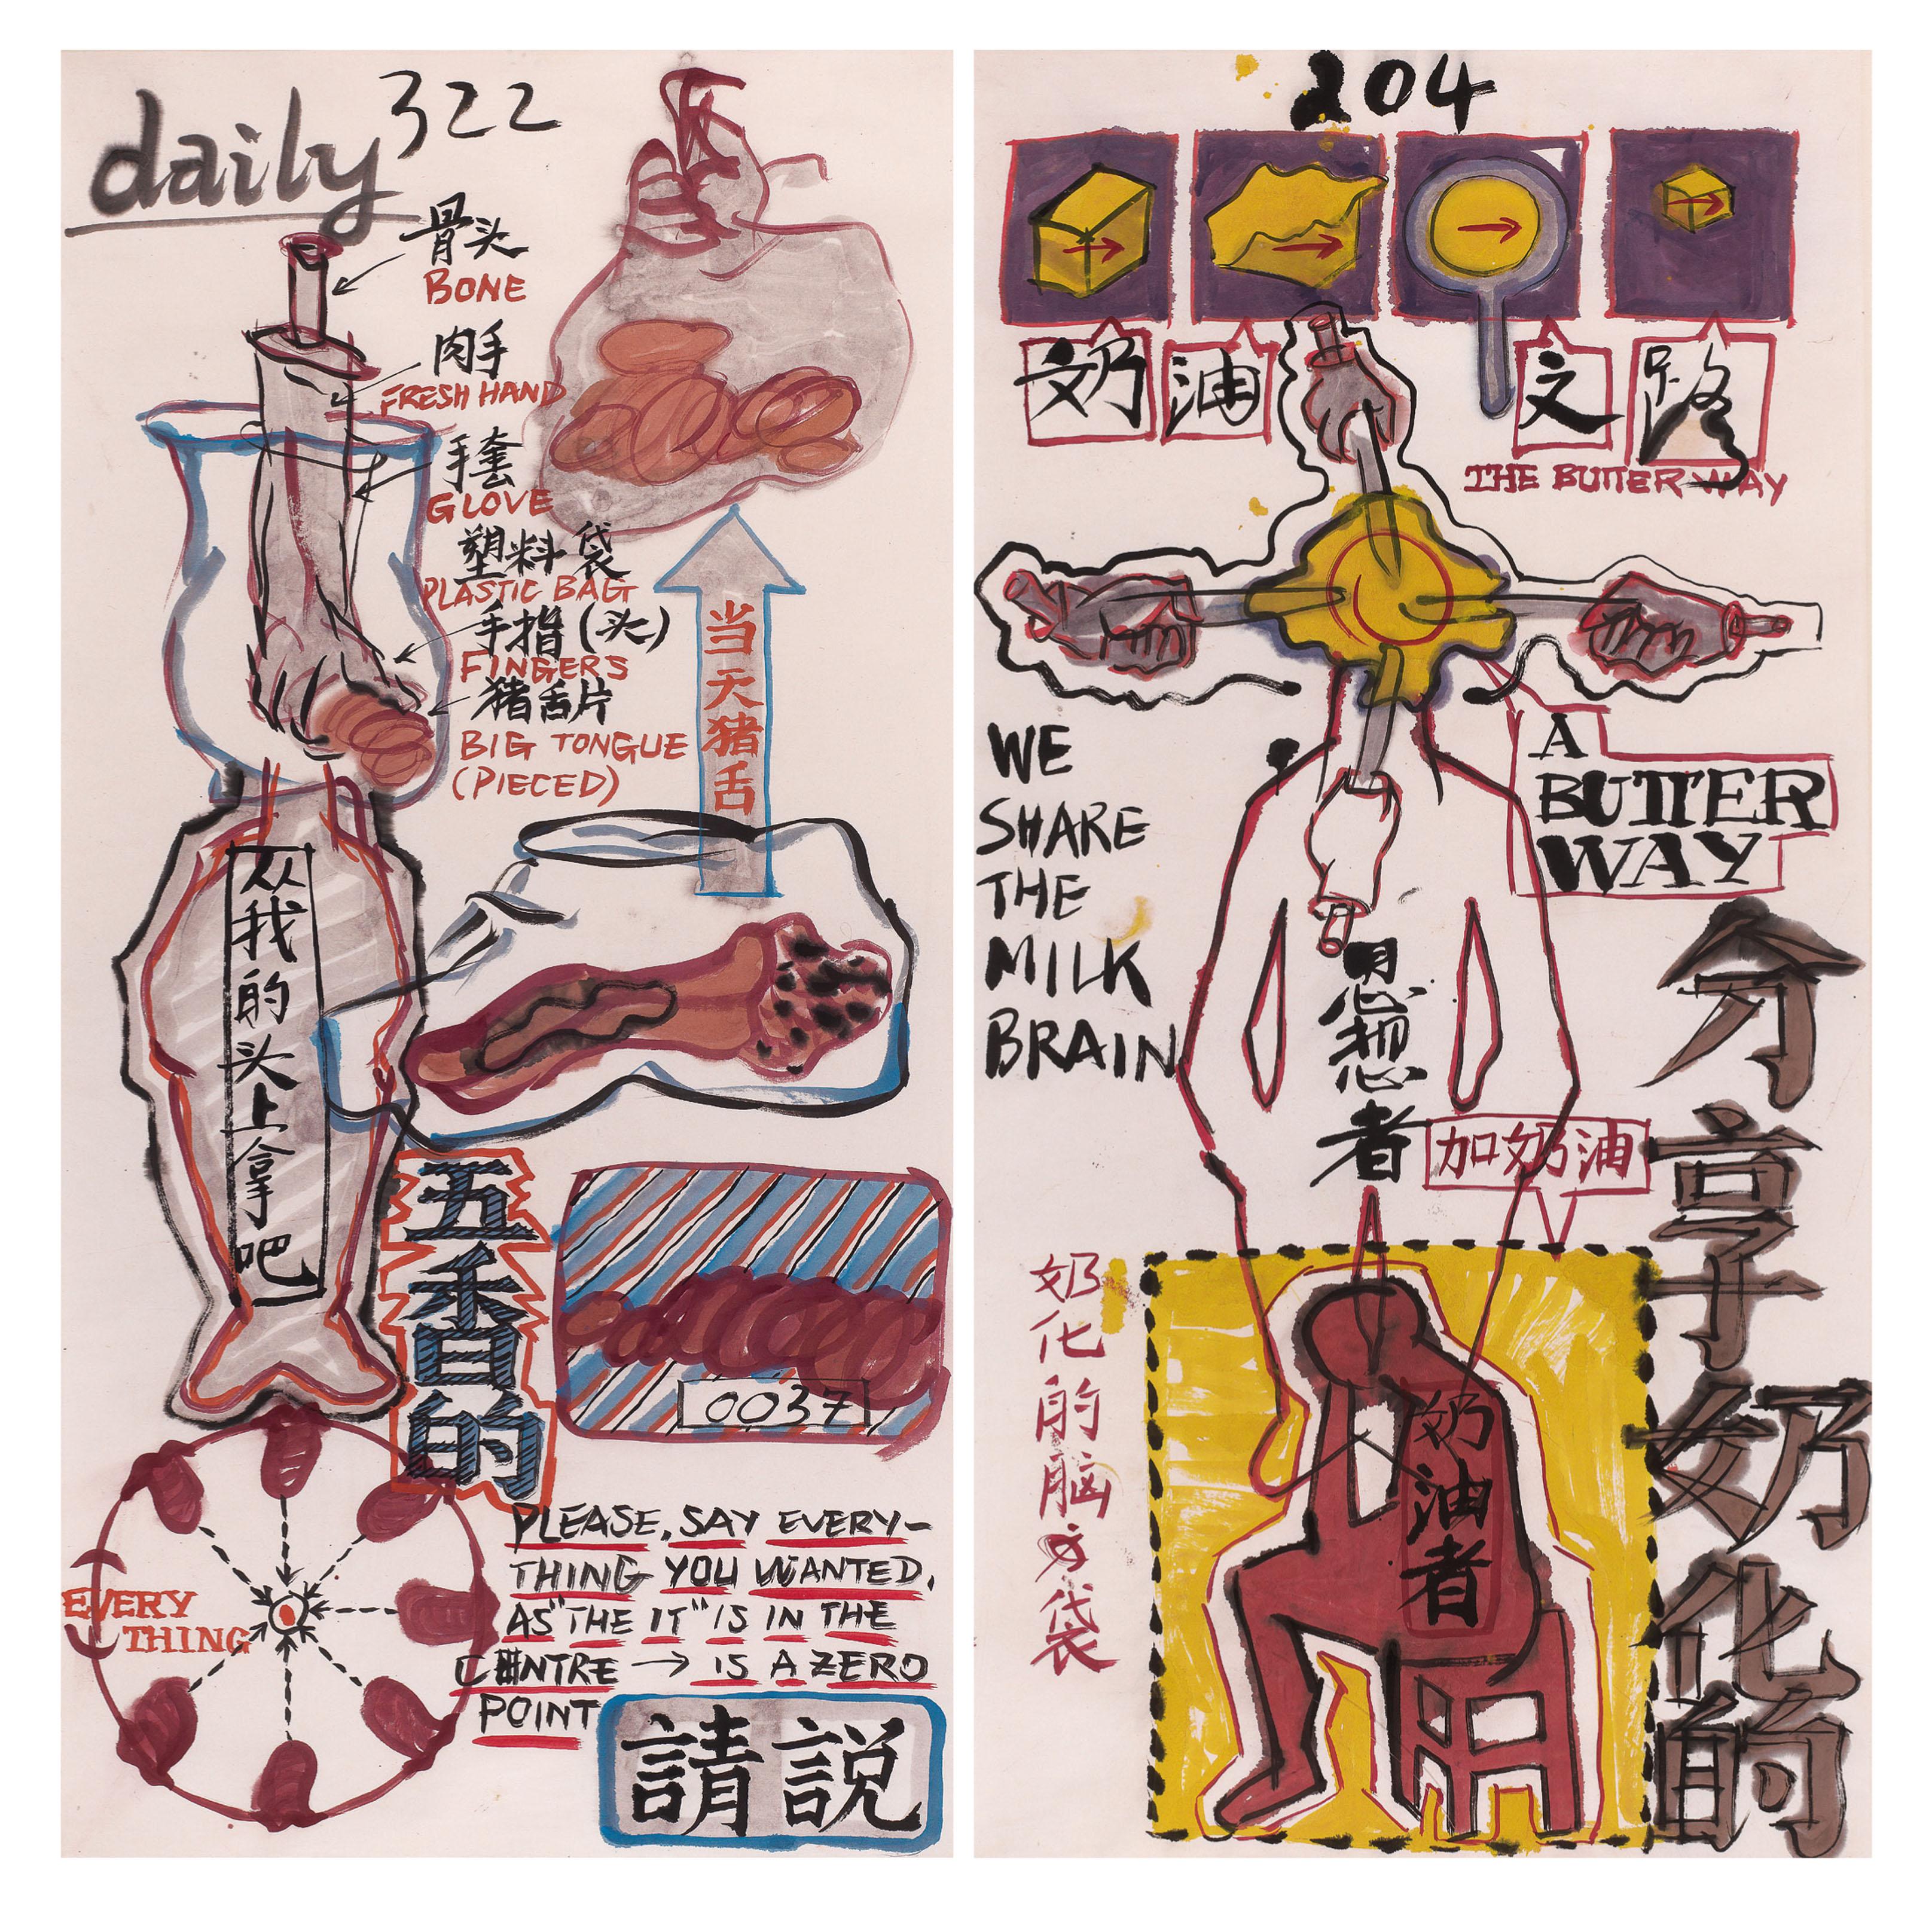 daily 322
骨头
BONE
肉手
FRESH HAND
手套
GLOVE
塑料袋
PLASTIC BAG
手指(头)
FINGERS
猪舌片
BIG TONGUE
(PIECED)
当天猪舌
从我的头上拿吧
五香的
0037
EVERY
THING
PLEASE, SAY EVERY-
THING YOU WANTED,
AS "THE IT" IS IN THE
CENTRE → IS A ZERO
POINT
請説
204
奶油之路
THE BUTTER WAY
WE
SHARE
THE
MILK
BRAIN
A
BUTTER
WAY
想者
加奶油
分享奶化的
奶化的脑袋
奶油者